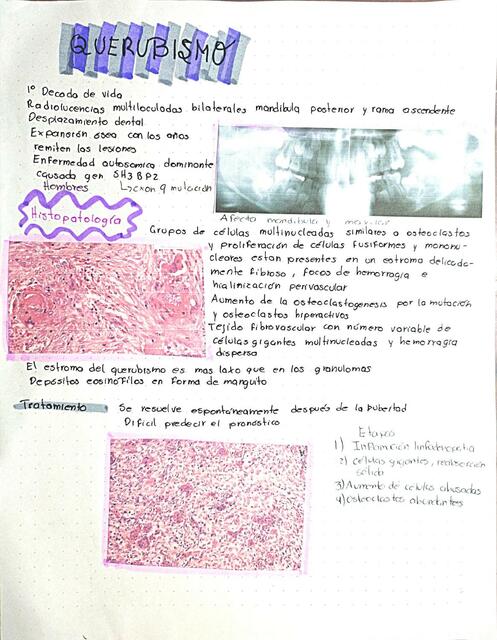 QUERUBISMO
1º Decada de vida
Radiolucencias multiloculadas bilaterales mandibula posterior y rama ascendente
Desplazamiento dental
Expansión osea con los años
remiten las lesiones
Enfermedad autosomica dominante
causada gen SH3BP2
Hombres ↳exon 9 mutación
Afecta mandibula y maxilar
Histopatología
Grupos de células multinucleadas similares a osteoclastos
y proliferación de células fusiformes y mononu-
cleares estan presentes en un estroma delicada-
mente fibroso, focos de hemorragia e
hialinización perivascular
Aumento de la osteoclastogenesis por la mutación
y osteoclastos hiperactivos
Tejido fibrovascular con número variable de
células gigantes multinucleadas y hemorragia
dispersa
El estroma del querubismo es mas laxo que en los granulomas
Depósitos eosinófilos en forma de manguito
Tratamiento
Se resuelve espontáneamente después de la pubertad
Dificil predecir el pronóstico
Etapas
1) Inflamación linfadenopatia
2) células gigantes, reabsorción
solida
3) Aumento de células ahusadas
4) osteoclastos abundantes